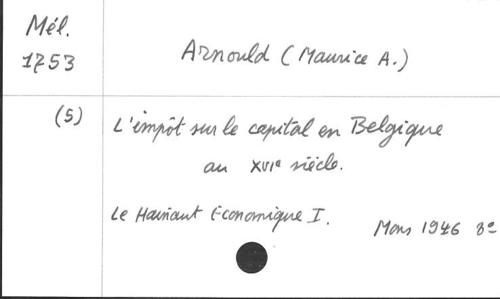 Mél.
1753
Arnould (Maurice A.)
(5)
L'impôt sur le capital en Belgique
au XVIe siècle.
Le Hainaut Economique I.
Mons 1946 8e